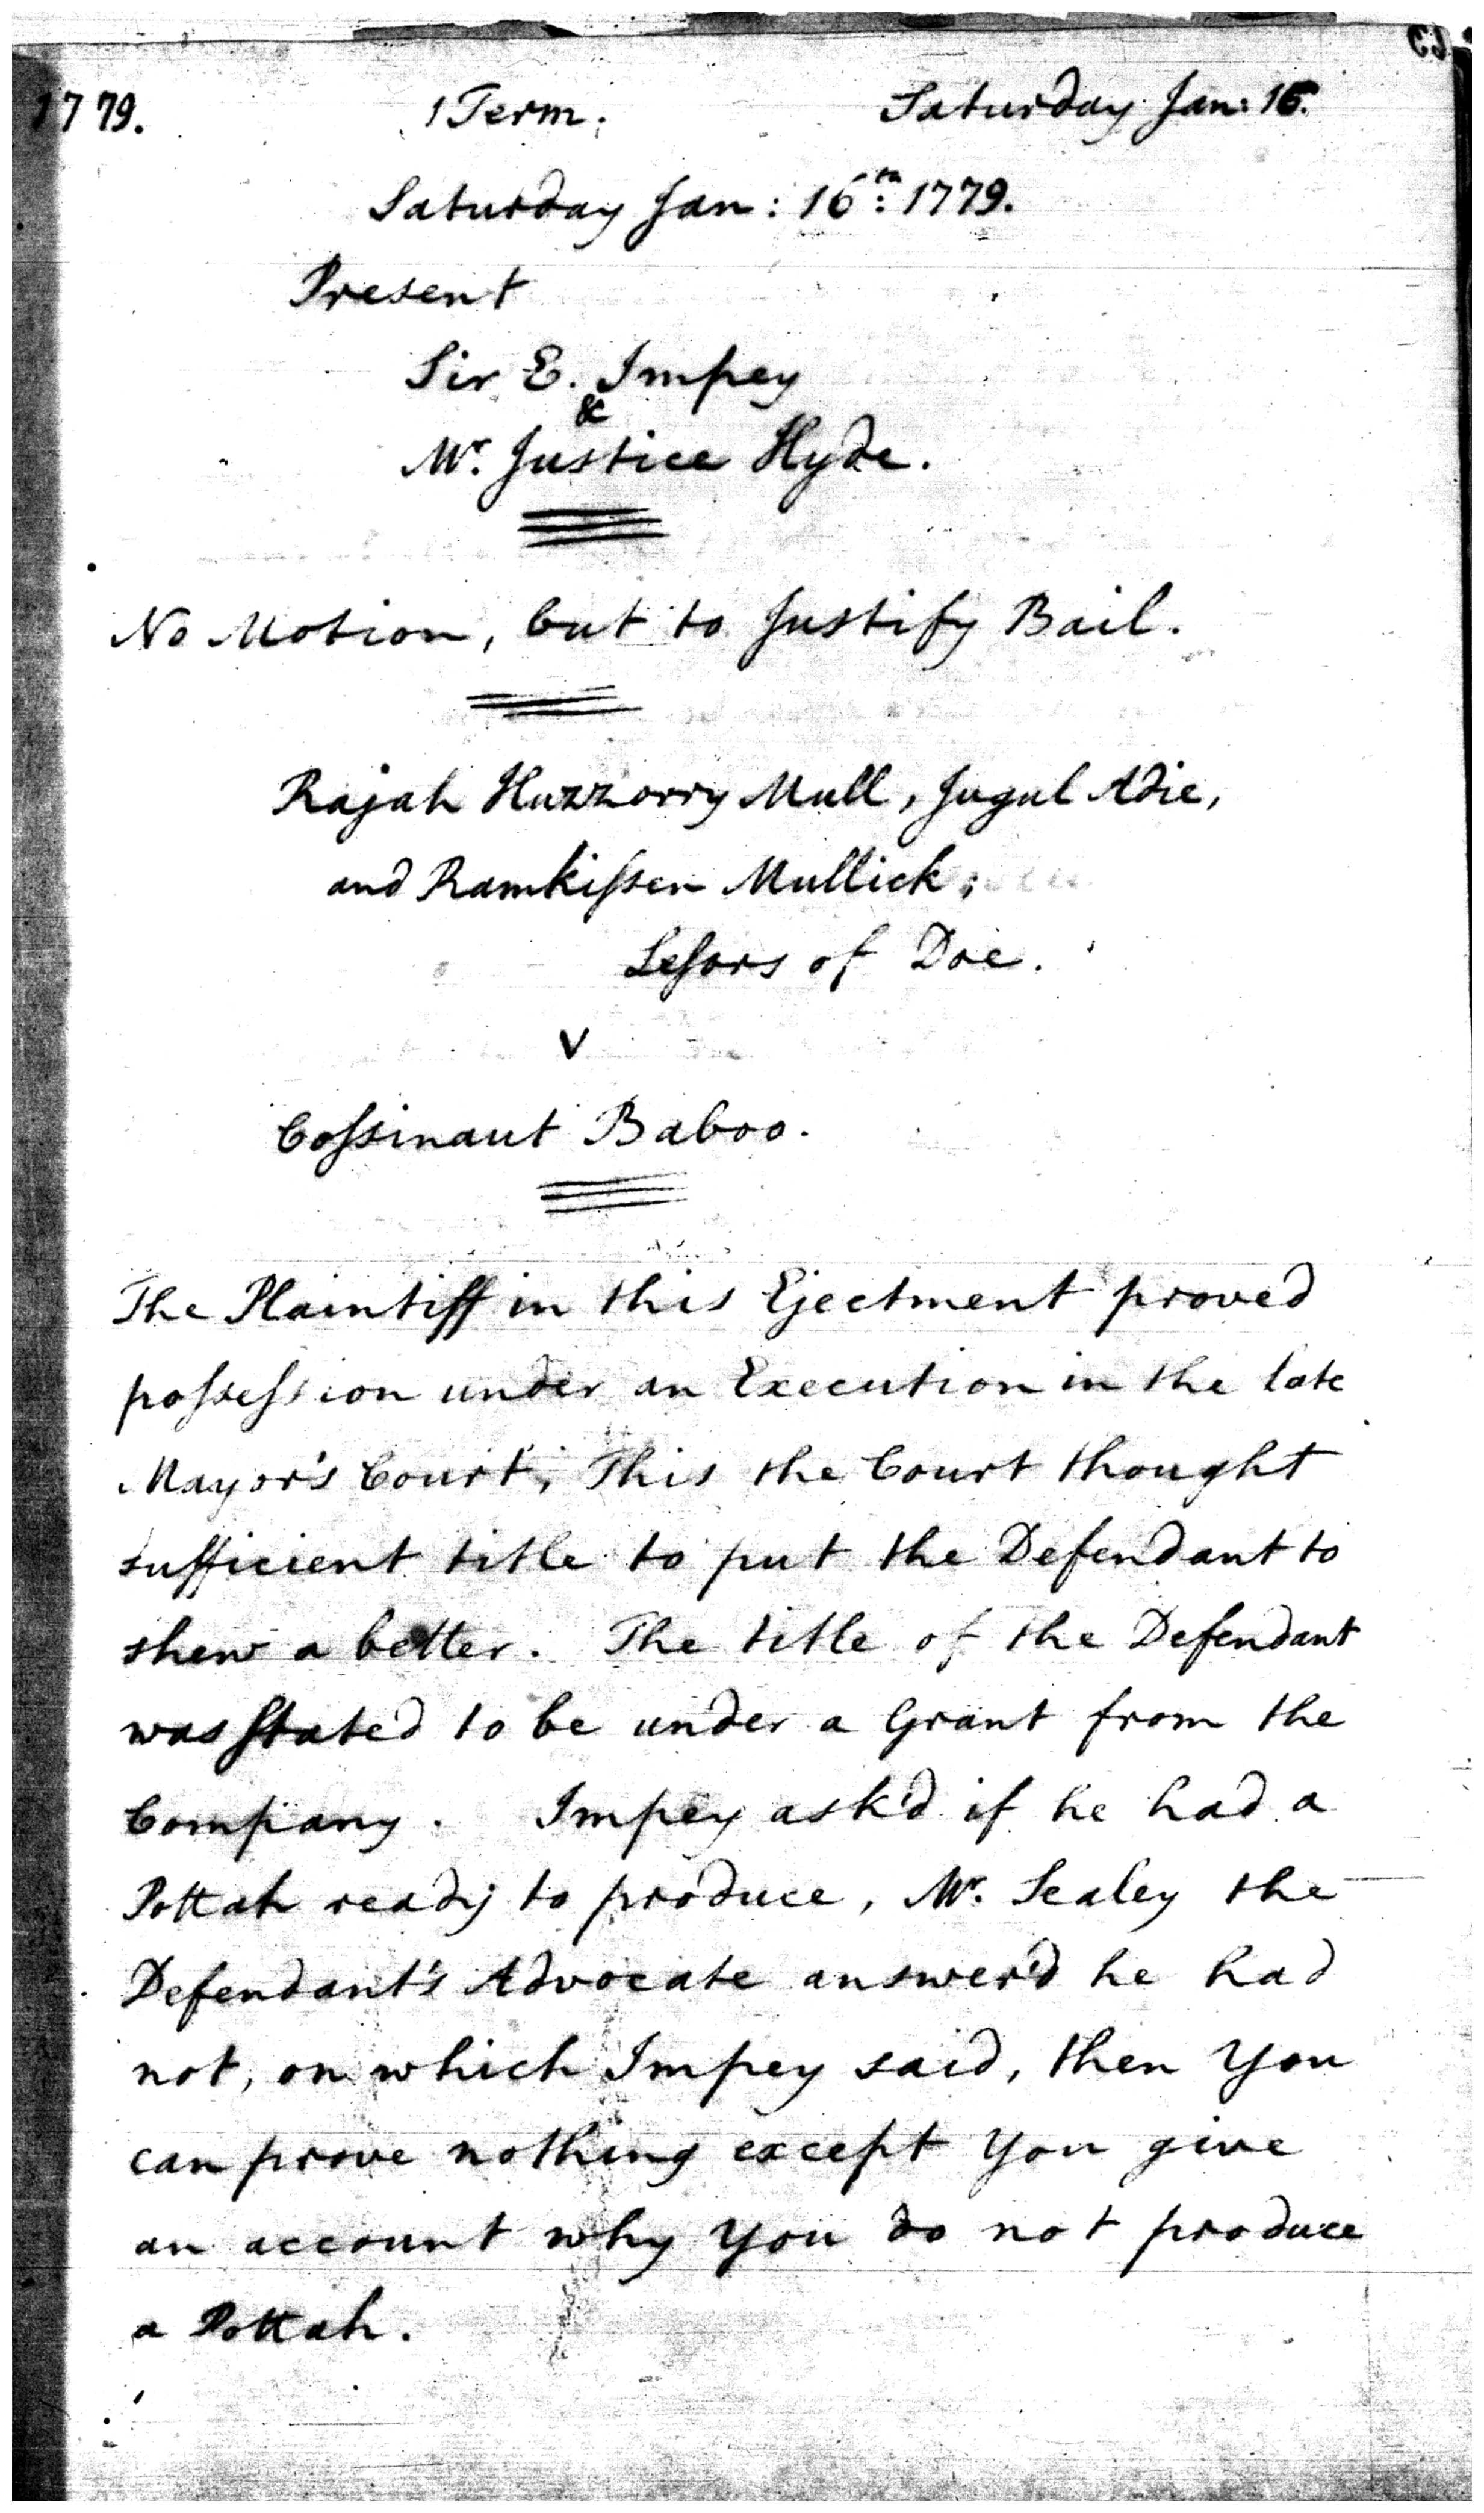 1779. 1 Term. Saturday Jan: 16.
Saturday Jan: 16th: 1779.
Present
Sir E. Impey
&
Mr. Justice Hyde.
No Motion, but to Justify Bail.
Rajah Huzzorry Mull, Jugul Adie,
and Ramkiſsen Mullick;
Leſsors of Doe.
V
Coſsinaut Baboo.
The Plaintiff in this Ejectment proved
poſseſsion under an Execution in the late
Mayor's Court; This the Court thought
sufficient title to put the Defendant to
shew a better. The title of the Defendant
was Stated to be under a Grant from the
Company. Impey ask'd if he had a
Pottah ready to produce, Mr. Sealey the
Defendant's Advocate answer'd he had
not, on which Impey said, then You
can prove nothing except You give
an account why You do not produce
a Pottah.